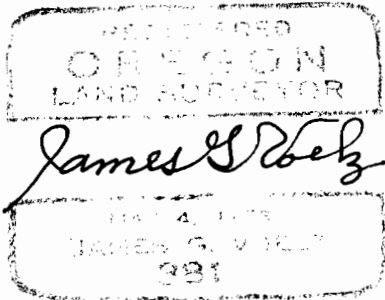 REGISTERED
OREGON
LAND SURVEYOR
James G Voelz
JAMES G. VOELZ
991